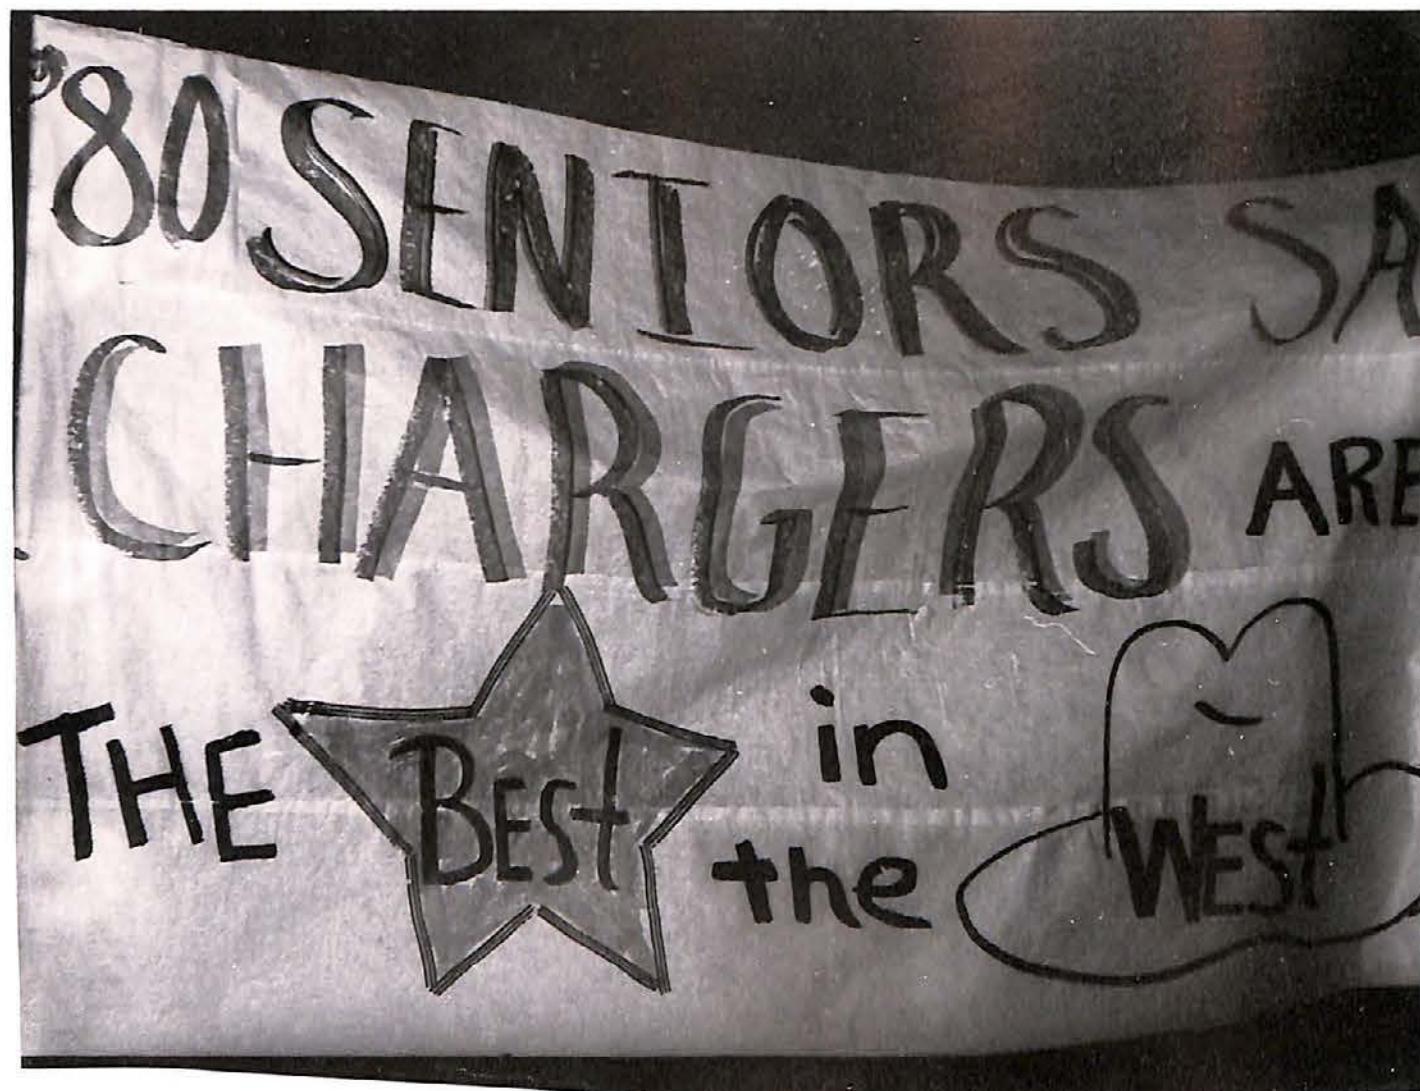 '80 SENIORS SA
CHARGERS ARE
THE BEst in
the WEst